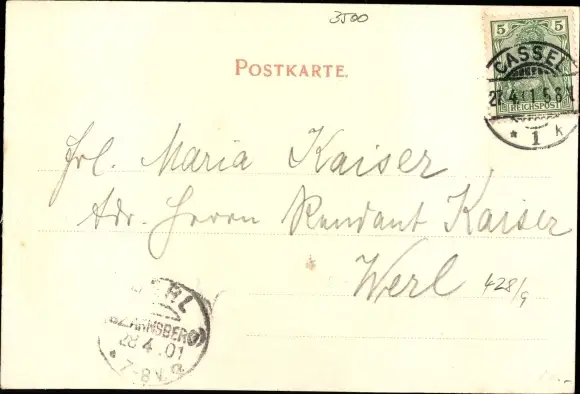 3500
5 5
REICHSPOST
CASSEL
27.4.01 5-8N
* 1 k
POSTKARTE.
Frl. Maria Kaiser
Adr. Herrn Rendant Kaiser
Werl
428/9
WERL
BZ. ARNSBERG
28.4.01
* 7-8V.